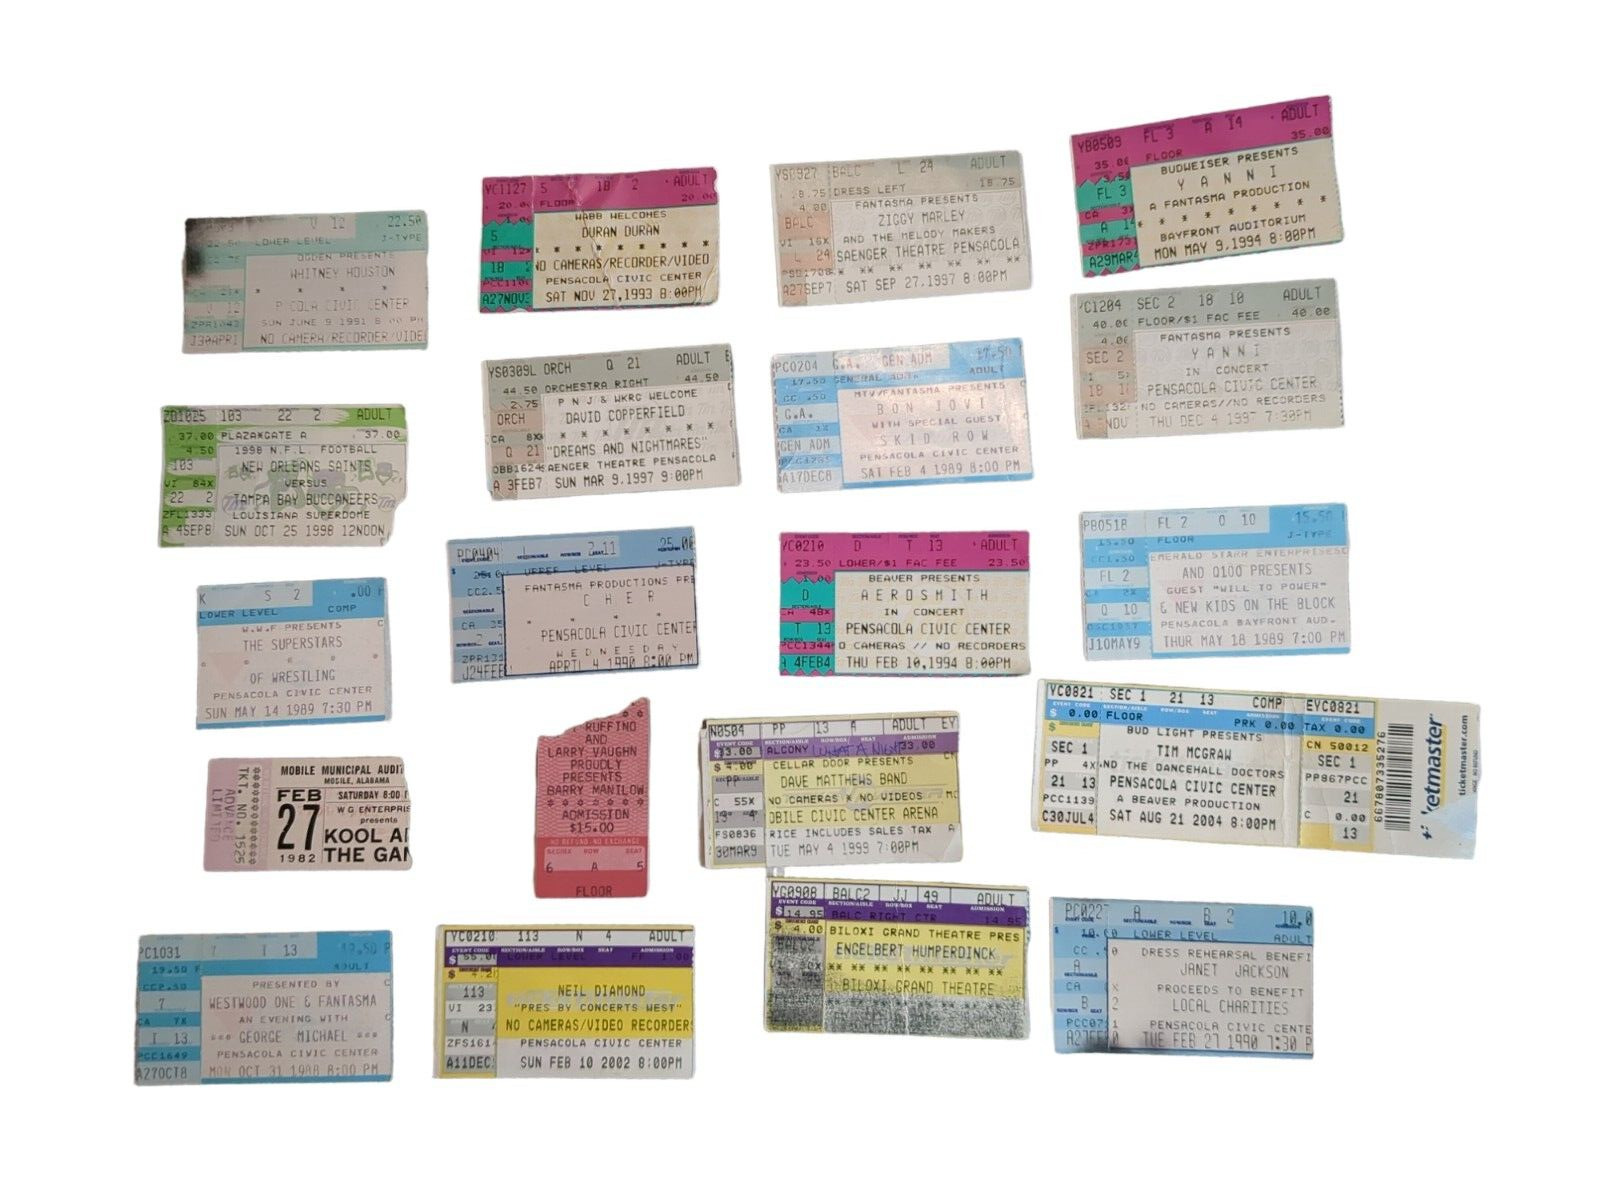 V 12 22.50
22.50 LOWER LEVEL J-TYPE
OGDEN PRESENTS
WHITNEY HOUSTON
P COLA CIVIC CENTER
SUN JUNE 9 1991 8 00 PM
ZPR1043
J30APR1 NO CAMERA/RECORDER/VIDE
YC1127 5 18 2 ADULT
20.00 FLOOR 20.00
WABB WELCOMES
DURAN DURAN
* * * * * * * *
NO CAMERAS/RECORDER/VIDEO
PENSACOLA CIVIC CENTER
A27NOV3 SAT NOV 27,1993 8:00PM
YS0927 BALC L 24 ADULT
18.75 DRESS LEFT 18.75
4.00 FANTASMA PRESENTS
BALC ZIGGY MARLEY
VI 16X AND THE MELODY MAKERS
L 24 SAENGER THEATRE PENSACOLA
PSB1708
A27SEP7 SAT SEP 27,1997 8:00PM
YB0509 FL 3 A 14 ADULT
35.00 FLOOR 35.00
BUDWEISER PRESENTS
FL 3 Y A N N I
A FANTASMA PRODUCTION
A 14 * * * * * * * *
BAYFRONT AUDITORIUM
A29MAR4 MON MAY 9,1994 8:00PM
ZD1025 103 22 2 ADULT
37.00 PLAZA*GATE A 37.00
4.50 1998 N.F.L. FOOTBALL
103 NEW ORLEANS SAINTS
VI 84X VERSUS
22 2 TAMPA BAY BUCCANEERS
ZFL1333 LOUISIANA SUPERDOME
A 4SEP8 SUN OCT 25 1998 12NOON
YS0309L ORCH Q 21 ADULT
44.50 ORCHESTRA RIGHT 44.50
2.75 P N J & WKRG WELCOME
ORCH DAVID COPPERFIELD
CA 8X * * * * * * * *
Q 21 "DREAMS AND NIGHTMARES"
OBB1624 SAENGER THEATRE PENSACOLA
A 3FEB7 SUN MAR 9,1997 9:00PM
PC0204 G.A. GEN ADM 17.50
17.50 GENERAL ADM. ADULT
CC .50 MTV/FANTASMA PRESENTS
G.A. BON JOVI
WITH SPECIAL GUEST
GEN ADM SKID ROW
PENSACOLA CIVIC CENTER
A17DEC8 SAT FEB 4 1989 8:00 PM
YC1204 SEC 2 18 10 ADULT
40.00 FLOOR/$1 FAC FEE 40.00
FANTASMA PRESENTS
SEC 2 Y A N N I
IN CONCERT
PENSACOLA CIVIC CENTER
NO CAMERAS//NO RECORDERS
THU DEC 4 1997 7:30PM
K S 2 .00
LOWER LEVEL COMP
W.W.F PRESENTS
THE SUPERSTARS
OF WRESTLING
PENSACOLA CIVIC CENTER
SUN MAY 14 1989 7:30 PM
PC0404 2 11 25.00
UPPER LEVEL J-TYPE
FANTASMA PRODUCTIONS PRE
C H E R
PENSACOLA CIVIC CENTER
WEDNESDAY
J24FEB APRIL 4 1990 8:00 PM
YC0210 D T 13 ADULT
23.50 LOWER/$1 FAC FEE 23.50
1.00 BEAVER PRESENTS
D AEROSMITH
CA 48X IN CONCERT
T 13 PENSACOLA CIVIC CENTER
PCC1344 NO CAMERAS // NO RECORDERS
A 4FEB4 THU FEB 10,1994 8:00PM
PB0518 FL 2 O 10 15.50
15.50 FLOOR J-TYPE
CC1.50 EMERALD STARR ENTERPRISES
FL 2 AND Q100 PRESENTS
GUEST "WILL TO POWER"
O 10 & NEW KIDS ON THE BLOCK
PENSACOLA BAYFRONT AUD.
J10MAY9 THUR MAY 18 1989 7:00 PM
TKT. NO. 1525
ADVANCE
LIMITED
MOBILE MUNICIPAL AUDIT
MOBILE, ALABAMA
FEB 27 1982
SATURDAY 8:00
W G ENTERPRIS
presents
KOOL A
THE GAN
RUFFINO
AND
LARRY VAUGHN
PROUDLY
PRESENTS
BARRY MANILOW
ADMISSION
$15.00
NO REFUND-NO EXCHANGE
ROW SEAT
6 A 5
FLOOR
N0504 PP 13 A ADULT EY
EVENT CODE SECTION/AISLE ROW/BOX SEAT ADMISSION
33.00 ALCONY WHAT A NIGHT 33.00
$ 4.00 CELLAR DOOR PRESENTS
PP DAVE MATTHEWS BAND
C 55X NO CAMERAS * NO VIDEOS
OBILE CIVIC CENTER ARENA
FS0836 RICE INCLUDES SALES TAX A
30MAR9 TUE MAY 4 1999 7:00PM
YC0821 SEC 1 21 13 COMP EYC0821
EVENT CODE SECTION/AISLE ROW/BOX SEAT ADMISSION EVENT CODE
$ 0.00 FLOOR PRK 0.00 TAX 0.00
BUD LIGHT PRESENTS CN 50012
SEC 1 TIM MCGRAW SEC 1
PP 4X AND THE DANCEHALL DOCTORS PP867PCC
21 13 PENSACOLA CIVIC CENTER 21
PCC1139 A BEAVER PRODUCTION C 0.00
C30JUL4 SAT AUG 21 2004 8:00PM 13
667807335276
ketmaster
ticketmaster.com
PC1031 7 I 13 19.50
19.50 ADULT
CC2.50 PRESENTED BY
7 WESTWOOD ONE & FANTASMA
CA 7X AN EVENING WITH
I 13 *** GEORGE MICHAEL ***
PCC1649 PENSACOLA CIVIC CENTER
A27OCT8 MON OCT 31 1988 8:00 PM
YC0210 113 N 4 ADULT
EVENT CODE SECTION/AISLE ROW/BOX SEAT ADMISSION
$ 55.00 LOWER LEVEL FF 1.00
113 NEIL DIAMOND
VI 23 "PRES BY CONCERTS WEST"
N NO CAMERAS/VIDEO RECORDERS
ZFS1614 PENSACOLA CIVIC CENTER
A11DEC SUN FEB 10 2002 8:00PM
YG0908 BALC2 JJ 49 ADULT
EVENT CODE SECTION/AISLE ROW/BOX SEAT ADMISSION
$ 14.95 BALC RIGHT CTR 14.95
$ 4.00 BILOXI GRAND THEATRE PRES
BALC2 ENGELBERT HUMPERDINCK
BILOXI GRAND THEATRE
PC0227 A B 2 10.0
10.00 LOWER LEVEL ADULT
DRESS REHEARSAL BENEFI
A JANET JACKSON
PROCEEDS TO BENEFIT
B 2 LOCAL CHARITIES
PENSACOLA CIVIC CENTE
TUE FEB 27 1990 7:30 P